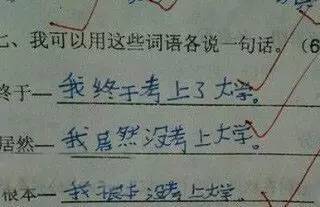 七、我可以用这些词语各说一句话。(6
终于—我终于考上了大学。
居然—我居然没考上大学。
根本—我根本没考上大学。